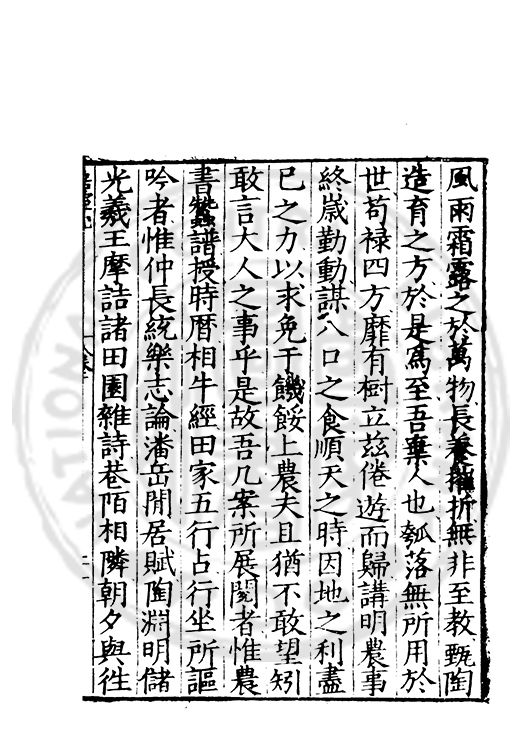 風雨霜露之於萬物長養摧折無非至教甄陶
造育之方於是寓至吾棄人也瓠落無所用於
世苟禄四方靡有樹立茲倦遊而歸講明農事
終歲勤動謀八口之食順天之時因地之利盡
已之力以求免于饑餒上農夫且猶不敢望矧
敢言大人之事乎是故吾几案所展閱者惟農
書蠶譜授時曆相牛經田家五行占行坐所謳
吟者惟仲長統樂志論潘岳閒居賦陶淵明儲
光羲王摩詰諸田園雜詩巷陌相隣朝夕與徃